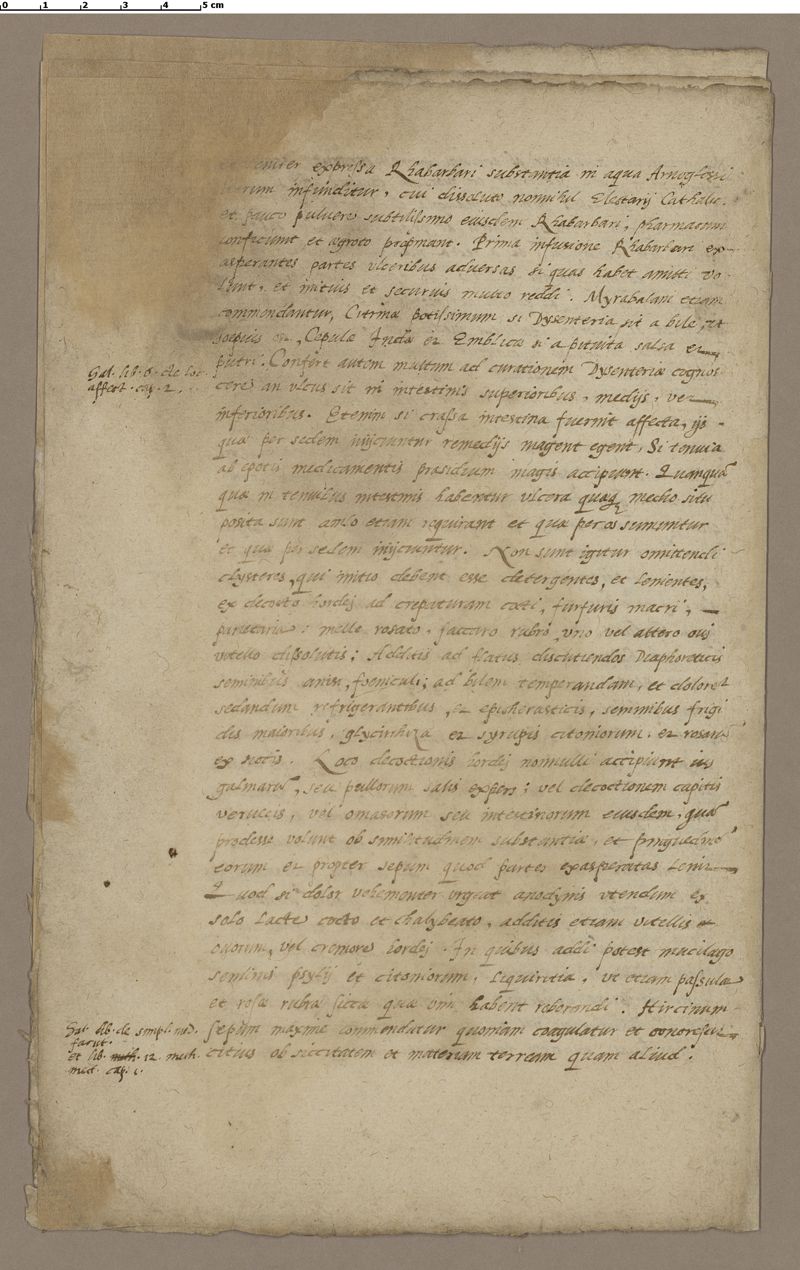 0 1 2 3 4 5 cm
expressa Rhabarbari substantia in aqua Arnoglossi
infunditur, cui dissoluto nonnihil Electarij Catholic.
et pauco pulvere subtilissimo eiusdem Rhabarbari, pharmacum
conficiunt et ægroto propinant. Prima infusione Rhabarbari ex-
asperantes partes ulceribus adversas si quas habet amitti vo-
lunt, et mitius et securius multo reddi. Myrabalani etiam
commendantur, Citrinæ potissimum si Dysenteria sit a bile, ut
sæpius et, Cepulæ Indæ et Emblicæ si a pituita salsa et
putri. Confert autem multum ad curationem Dysenteriæ cognos
Gal. lib. 6. de loc.
affect. cap. 2.
cere an ulcus sit in intestinis superioribus, medijs, vel
inferioribus. Etenim si crassa intestina fuerint affecta, ijs
quæ per sedem inijciuntur remedijs magent egent, Si tenuia
ab epotis medicamentis præsidium magis accipiunt. Quanquã
quæ in tenuibus intestinis habentur ulcera quæq medio situ
posita sunt ambo etiam requirant et quæ per os sumuntur
et quæ per sedem inijciuntur. Non sunt igitur omittendi
clysteres, qui initio debent esse detergentes, et lenientes,
ex decocto hordej ad crepaturam cocti, furfuris macri,
parietariæ: melle rosato, saccaro rubro, uno vel altero ovj
vitello dissolutis; Additis ad flatus discutiendos Diaphoreticis
seminibus anisi, fœniculi; ad bilem temperandam, et dolorem
sedandum refrigerantibus, et epicherasticis, seminibus frigi
dis maioribus, glycirrhiza et syrupis citoniorum, et rosarũ
ex siccis. Loco decoctionis hordej nonnulli accipiunt ius
gallinarũ, seu pullorum salis expers; vel decoctionem capitis
vervecis, vel omasorum seu intestinorum eiusdem, quã
prodesse volunt ob similitudinem substantiæ, et pinguedinẽ
eorum et propter sepum quod partes exasperatas lenit
Quod si dolor vehementer urgeat anodynis utendum ex
solo Lacte cocto et chalybeato, additis etiam vitellis
ovorum, vel cremore hordej. In quibus addi potest mucilago
seminis psylij et citoniorum, Liquiritia, ut etiam passulæ
et rosæ rubræ siccæ quæ vim habent roborandi. Hircinum
Gal. lib. de simpl. med.
facut.
et lib. 12. meth.
med. cap. 1.
sepum maxime commendatur quoniam coagulatur et concrescit
citius ob siccitatem et materiam terream quam aliud.